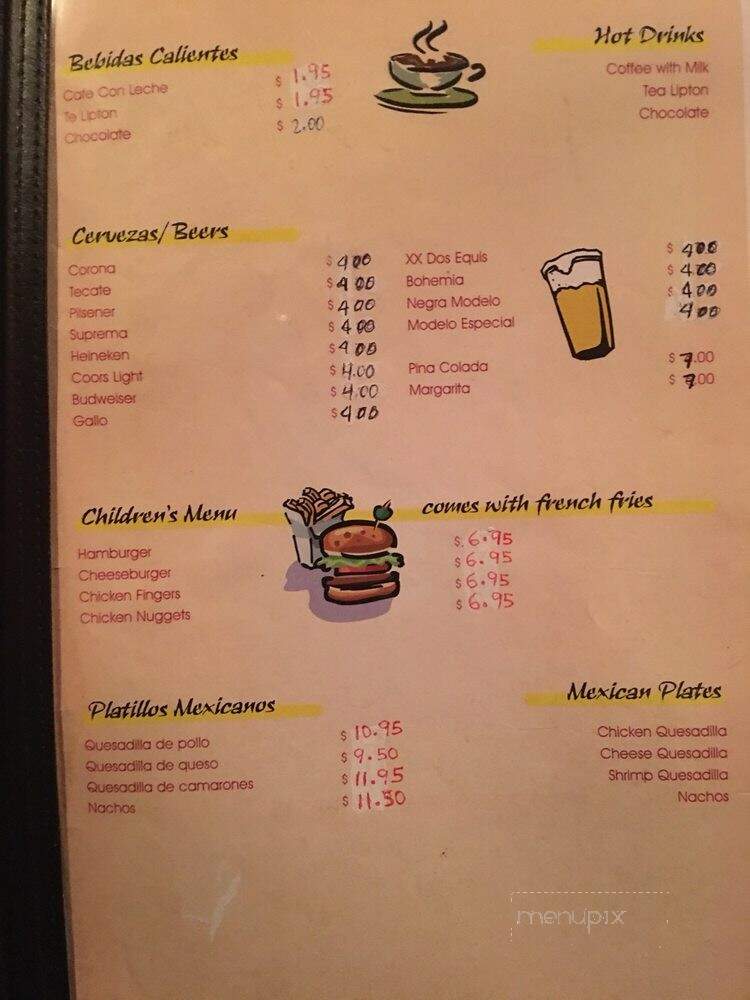 Bebidas Calientes
Cafe Con Leche $ 1.95
Te Lipton $ 1.95
Chocolate $ 2.00
Hot Drinks
Coffee with Milk
Tea Lipton
Chocolate
Cervezas/Beers
Corona $ 4.00
Tecate $ 4.00
Pilsener $ 4.00
Suprema $ 4.00
Heineken $ 4.00
Coors Light $ 4.00
Budweiser $ 4.00
Gallo $ 4.00
XX Dos Equis $ 4.00
Bohemia $ 4.00
Negra Modelo $ 4.00
Modelo Especial 4.00
Pina Colada $ 7.00
Margarita $ 7.00
Children's Menu comes with french fries
Hamburger $ 6.95
Cheeseburger $ 6.95
Chicken Fingers $ 6.95
Chicken Nuggets $ 6.95
Platillos Mexicanos
Quesadilla de pollo $ 10.95
Quesadilla de queso $ 9.50
Quesadilla de camarones $ 11.95
Nachos $ 11.50
Mexican Plates
Chicken Quesadilla
Cheese Quesadilla
Shrimp Quesadilla
Nachos
menupix